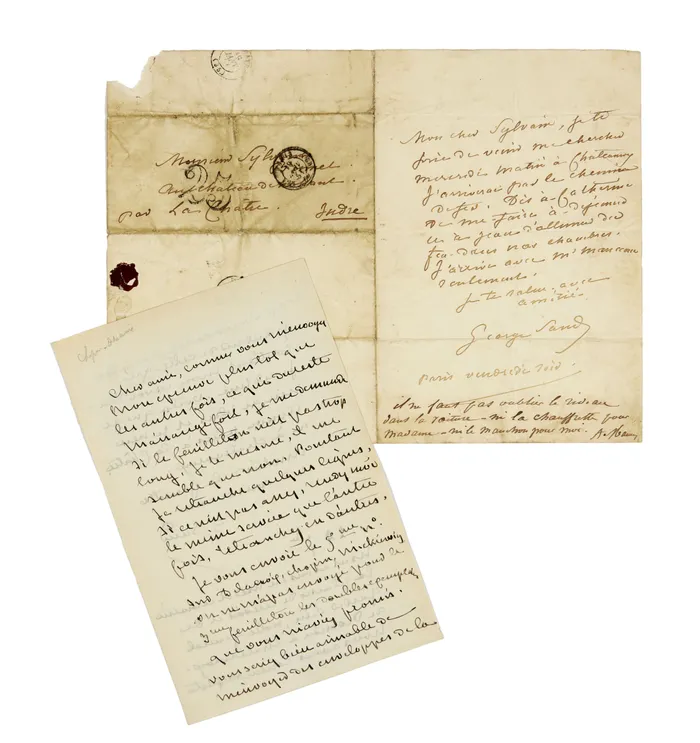 Monsieur Sylvain
par La Châtre.
Indre
Mon cher Sylvain, je te
prie de venir me chercher
mercredi matin à Châteauroux
J'arriverai par le chemin
de fer. Dis à Catherine
de me faire à déjeuner
et à jean d'allumer du
feu dans nos chambres.
J'arrive avec Mr Manceau
seulement.
Je te salue avec
amitié.
George Sand
Paris vendredi soir.
il ne faut pas oublier le rideau
dans la voiture – ni la chaufferette pour
madame – ni le manchon pour moi.
cher ami, comme vous m'envoyez
mon épreuve plus tot que
les autres fois, ce qui du reste
m'arrange fort, je me demande
si le feuilleton n'est pas trop
long, je le mesure, il me
semble que non. Pourtant
je retranche quelques lignes,
si ce n'est pas assez, rendez moi
le même service que l'autre
fois, retranchez en d'autres.
Je vous envoie le
sur Delacroix, chopin, mickiewicz
on ne m'a pas envoyé pour le
feuilleton les doubles
que vous m'aviez promis.
vous seriez bien aimable de
m'envoyer des enveloppes de la